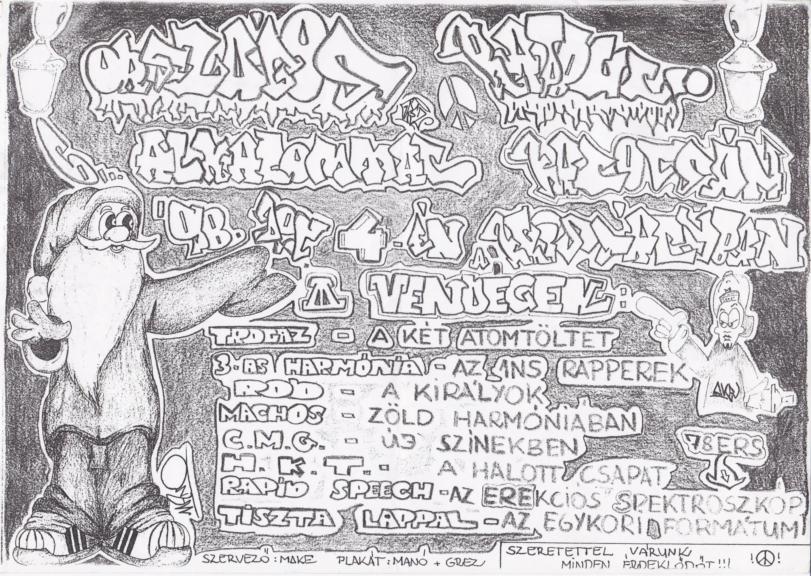 ORSZÁGOS
6... ALKALOMMAL KALOCSÁN
'98. 4-ÉN A
A VENDÉGEK:
TRDGÁZ - A KÉT ATOMTÖLTET
3-AS HARMÓNIA - AZ 1NS RAPPEREK
ROD - A KIRÁLYOK
MACHOS - ZÖLD HARMÓNIÁBAN
C.M.G. - ÚJ SZÍNEKBEN
H.K.T. - A HALOTT CSAPAT
RAPID SPEECH - AZ EREKCIÓS SPEKTROSZKÓP
TISZTA LAPPAL - AZ EGYKORI D FORMÁTUM!
78ERS
SZERVEZŐ: MAKE PLAKÁT: MANÓ + GREZ
SZERETETTEL VÁRUNK
MINDEN ÉRDEKLŐDŐT!!!